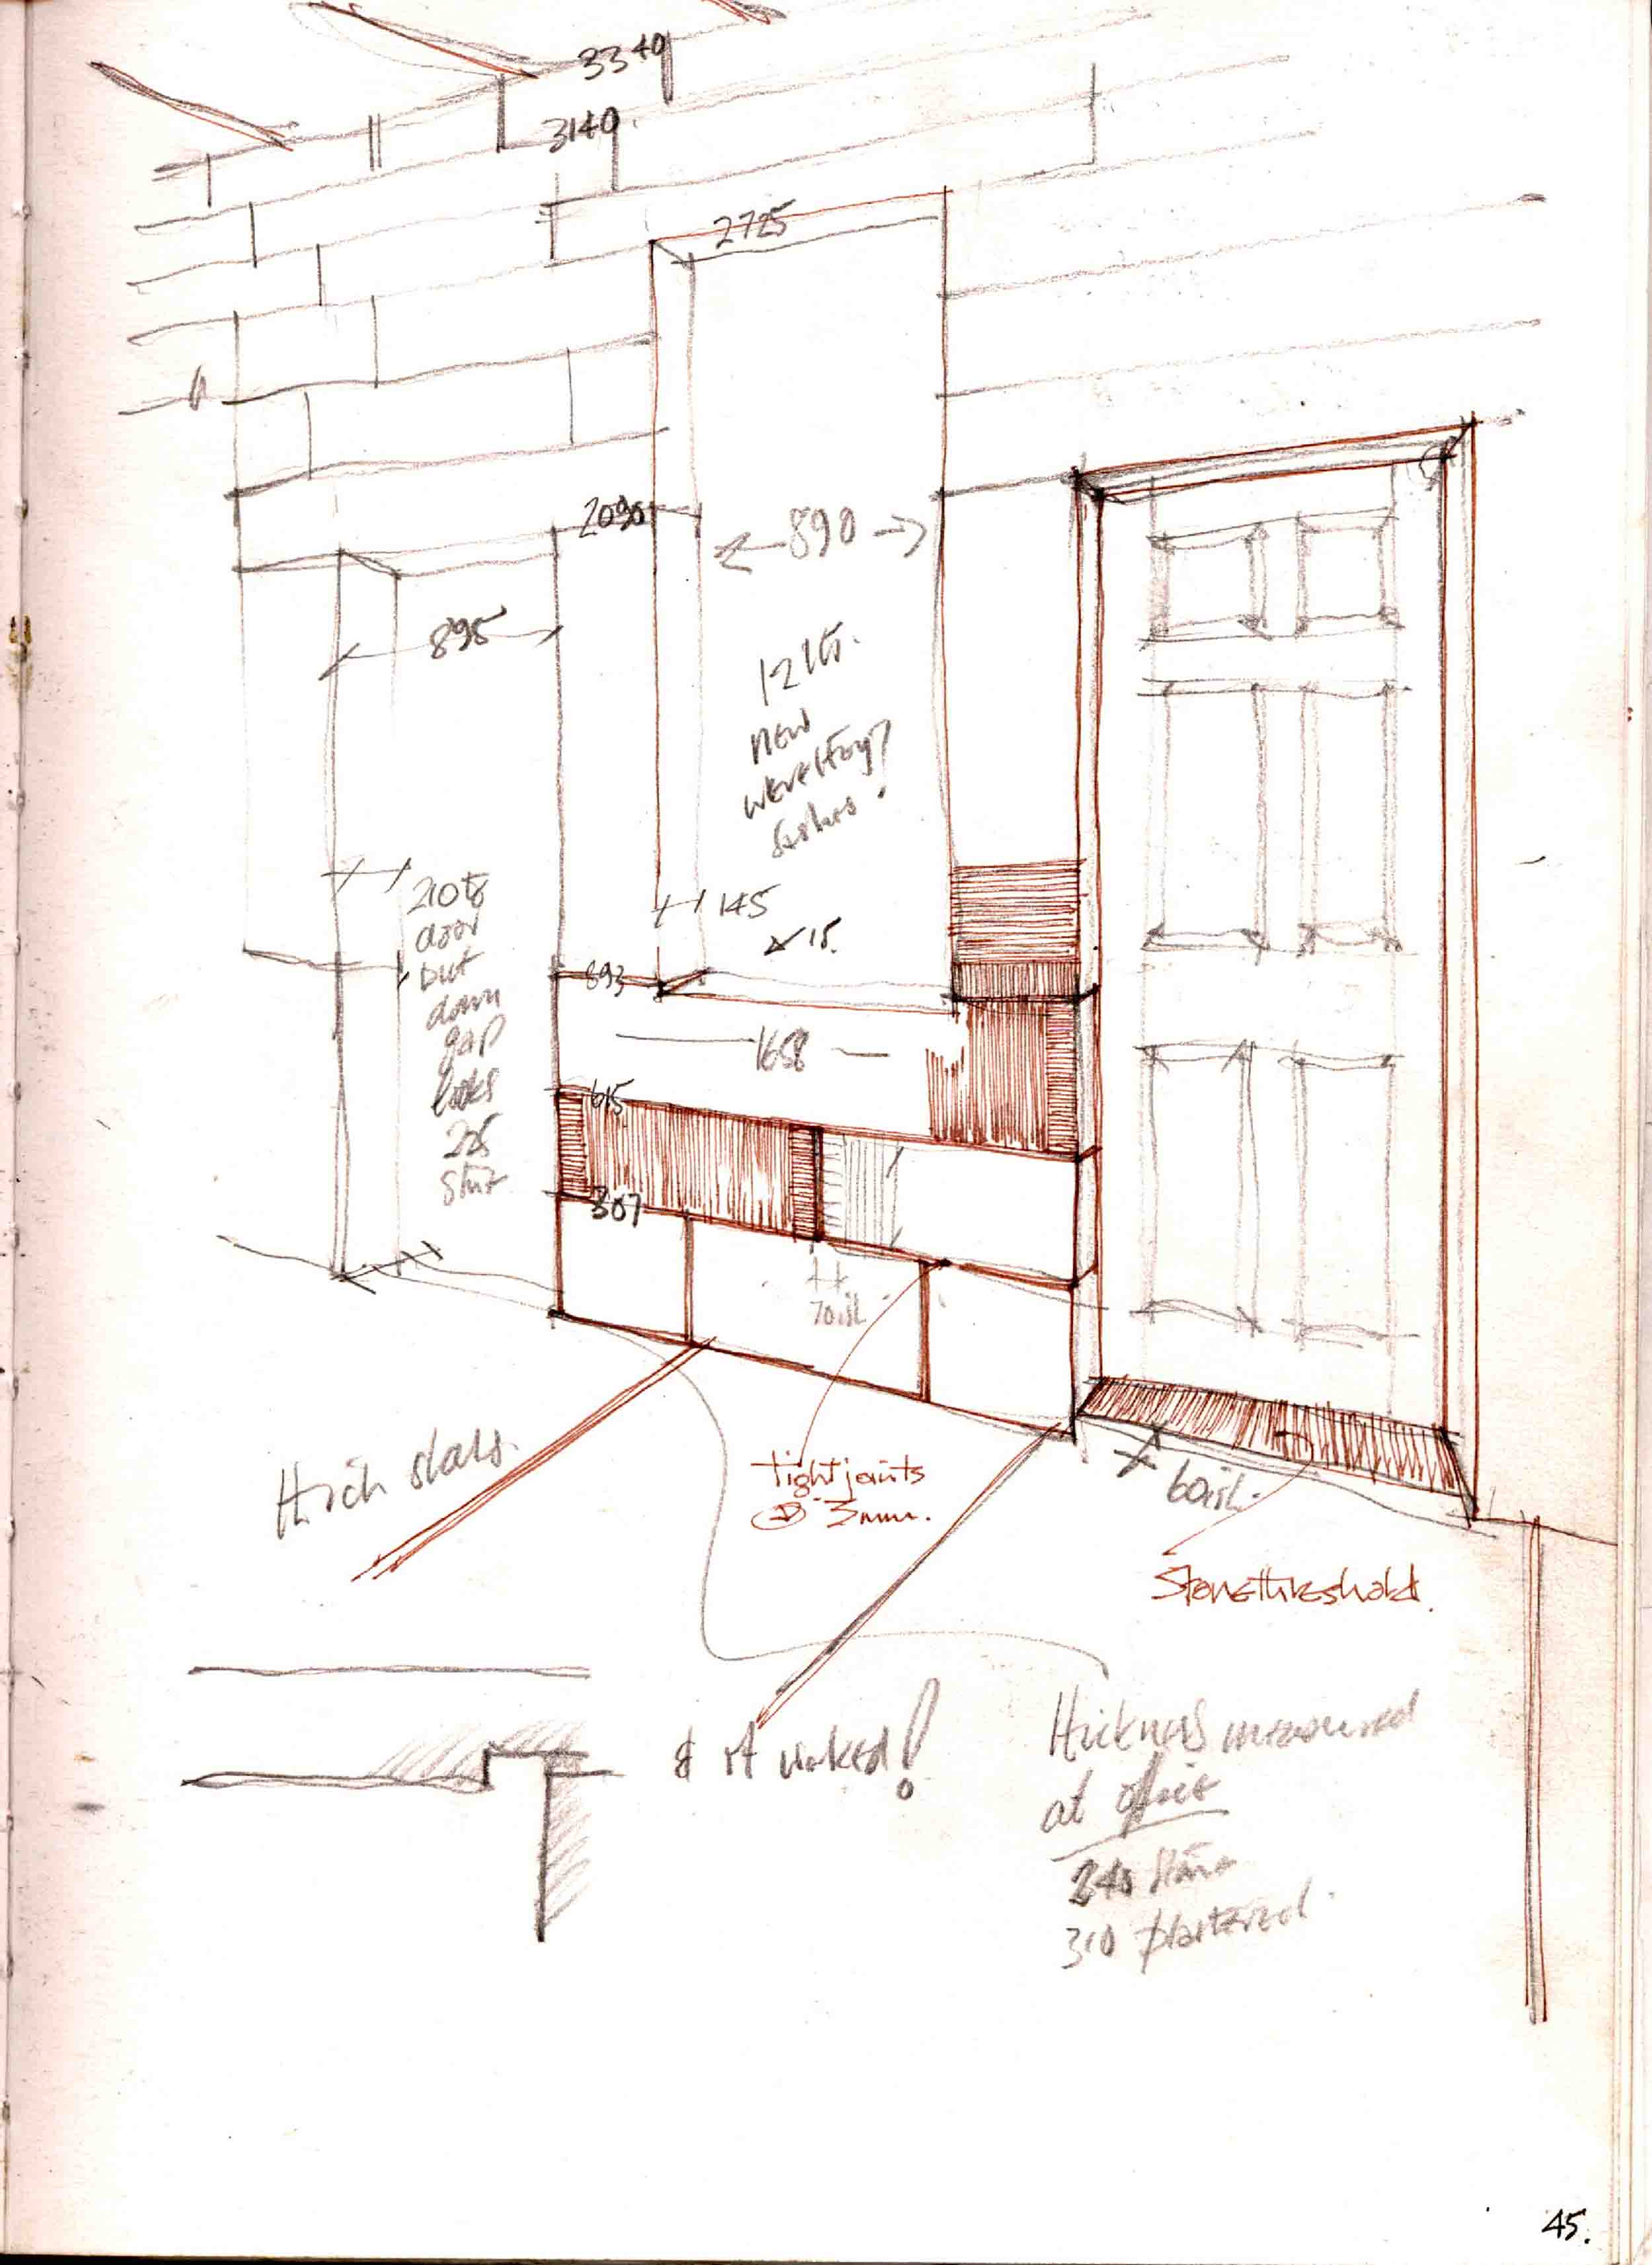 3340
3140
2725
2090
←890→
895
12 lt.
new
sashes!
210 to
door
but
down
gap
looks
225
145
15.
893
1658
615
307
Thick slabs.
tight joints
@ 3mm.
60ish.
70ish.
Stone threshold.
& it worked!
Thickness measured
at office
240 stone
310 plastered.
45.